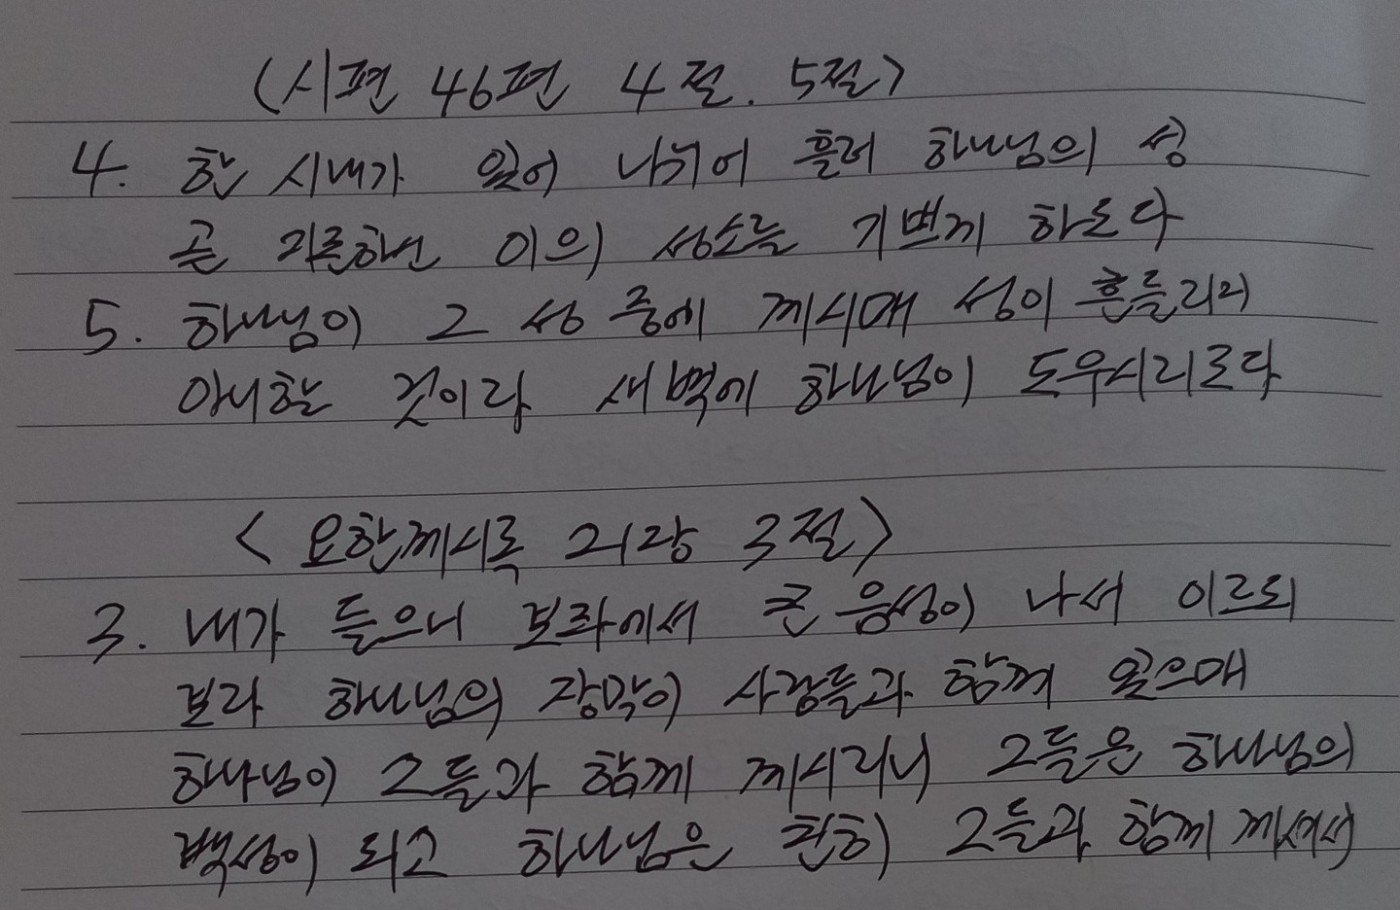 <시편 46편 4절. 5절>
4. 한 시내가 있어 나뉘어 흘러 하나님의 성
곧 지존하신 이의 성소를 기쁘게 하도다
5. 하나님이 그 성 중에 계시매 성이 흔들리지
아니할 것이라 새벽에 하나님이 도우시리로다
< 요한계시록 21장 3절>
3. 내가 들으니 보좌에서 큰 음성이 나서 이르되
보라 하나님의 장막이 사람들과 함께 있으매
하나님이 그들과 함께 계시리니 그들은 하나님의
백성이 되고 하나님은 친히 그들과 함께 계셔서